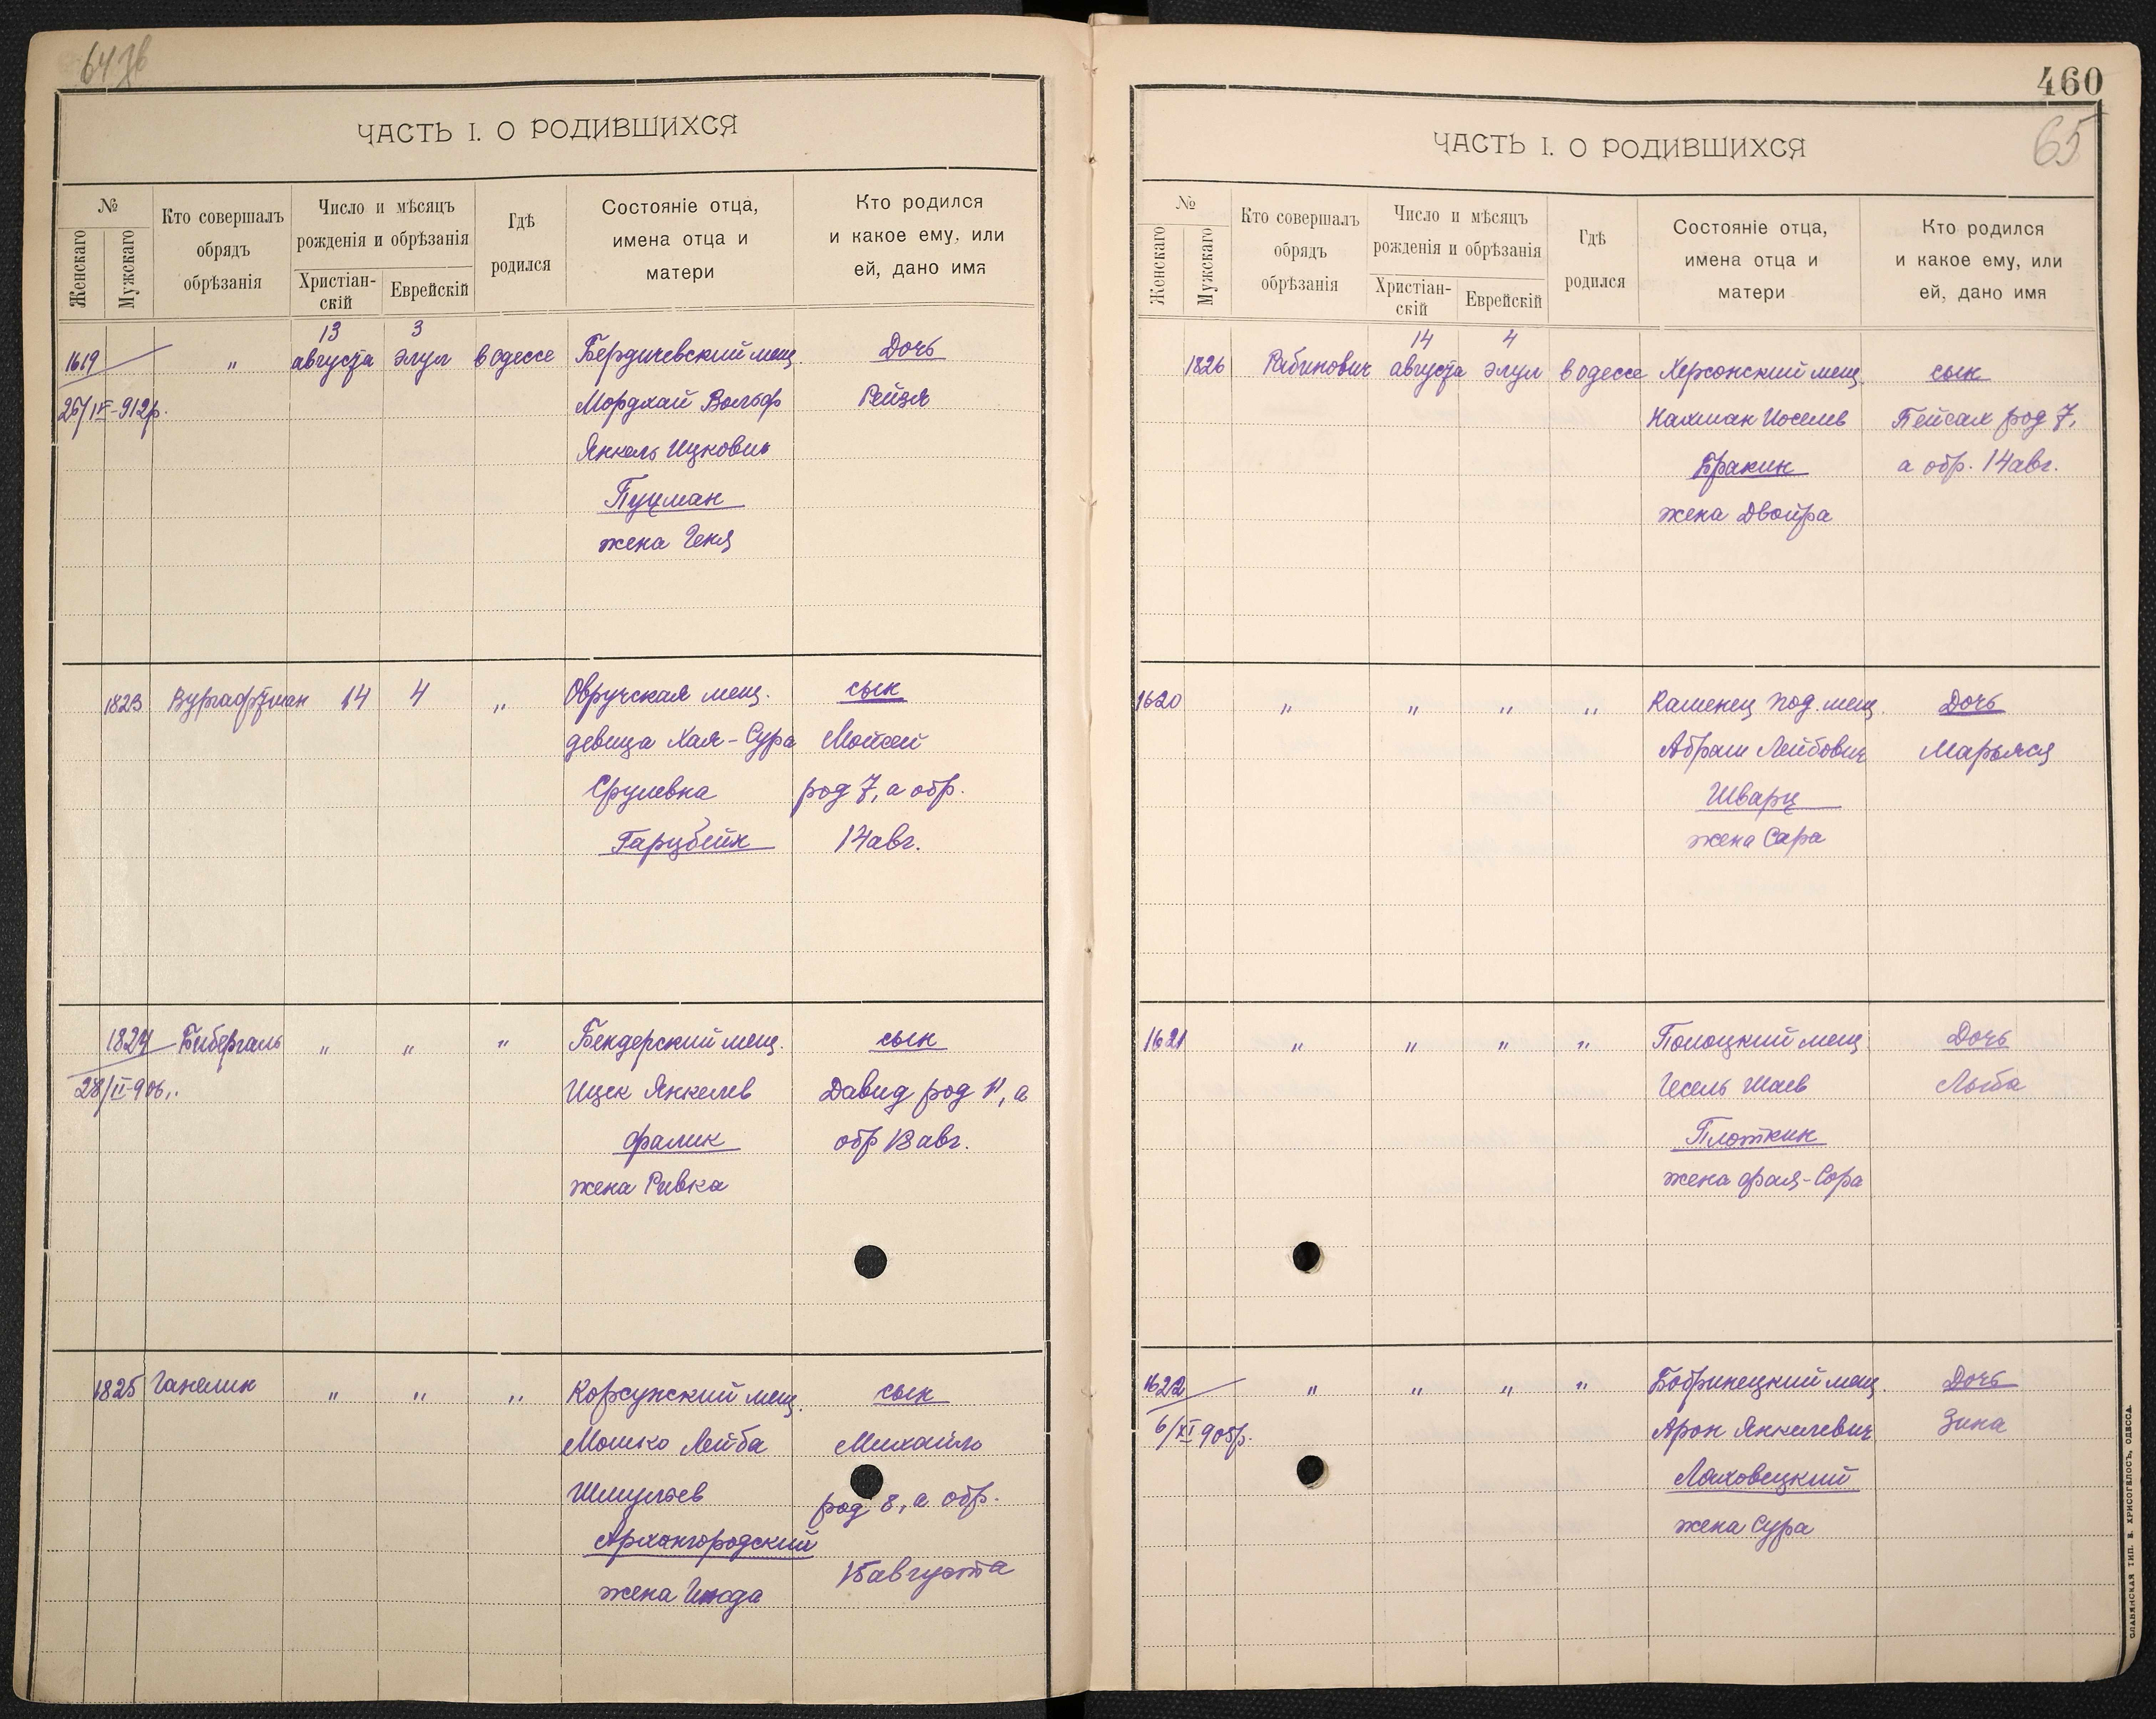 64 зв
ЧАСТЬ I. О РОДИВШИХСЯ
№
Женскаго
Мужскаго
Кто совершалъ
обрядъ
обрѣзанія
Число и мѣсяцъ
рожденія и обрѣзанія
Христіан-
скій
Еврейскій
Гдѣ
родился
Состояніе отца,
имена отца и
матери
Кто родился
и какое ему, или
ей, дано имя
13 3
1619 " августа элул в Одессе Бердичевский мещ. Дочь
25/IV-912р. Мордхай Вольф Рейзя
Янкель Ицкович
Пуцман
жена Геня
1823 Вургафтман 14 4 " Овручская мещ. сын
девица Хая-Сура Мойсей
Срулевна род 7, а обр.
Гарцбейн 14 авг.
1824 Бибергаль " " " Бендерский мещ. сын
28/II-906 Ицек Янкелев Давид род 11, а
Фалик обр 18 авг.
жена Ривка
1825 Ганелин " " " Корсунский мещ. сын
Мошко Лейба Михаиль
Шмульев род 8, а обр.
Архангородский 15 августа
жена
460
65
ЧАСТЬ I. О РОДИВШИХСЯ
№
Женскаго
Мужскаго
Кто совершалъ
обрядъ
обрѣзанія
Число и мѣсяцъ
рожденія и обрѣзанія
Христіан-
скій
Еврейскій
Гдѣ
родился
Состояніе отца,
имена отца и
матери
Кто родился
и какое ему, или
ей, дано имя
14 4
1826 Рабинович августа элул в Одессе Херсонский мещ. сын
Нахман Иоселев Пейсах род 7,
Бракин а обр. 14 авг.
жена Двойра
1620 " " " " Каменец Под. мещ. Дочь
Абрам Лейбович Марьяся
Шварц
жена Сара
1621 " " " " Полоцкий мещ. Дочь
Гесель Шаев Люба
Плоткин
жена Фрая-Сора
1622 " " " " Бобринецкий мещ. Дочь
6/XI 905р. Арон Янкелевич Зина
Ляховецкий
жена Сура
СЛАВЯНСКАЯ ТИП. Н. ХРИСОГЕЛОСЪ, ОДЕССА.